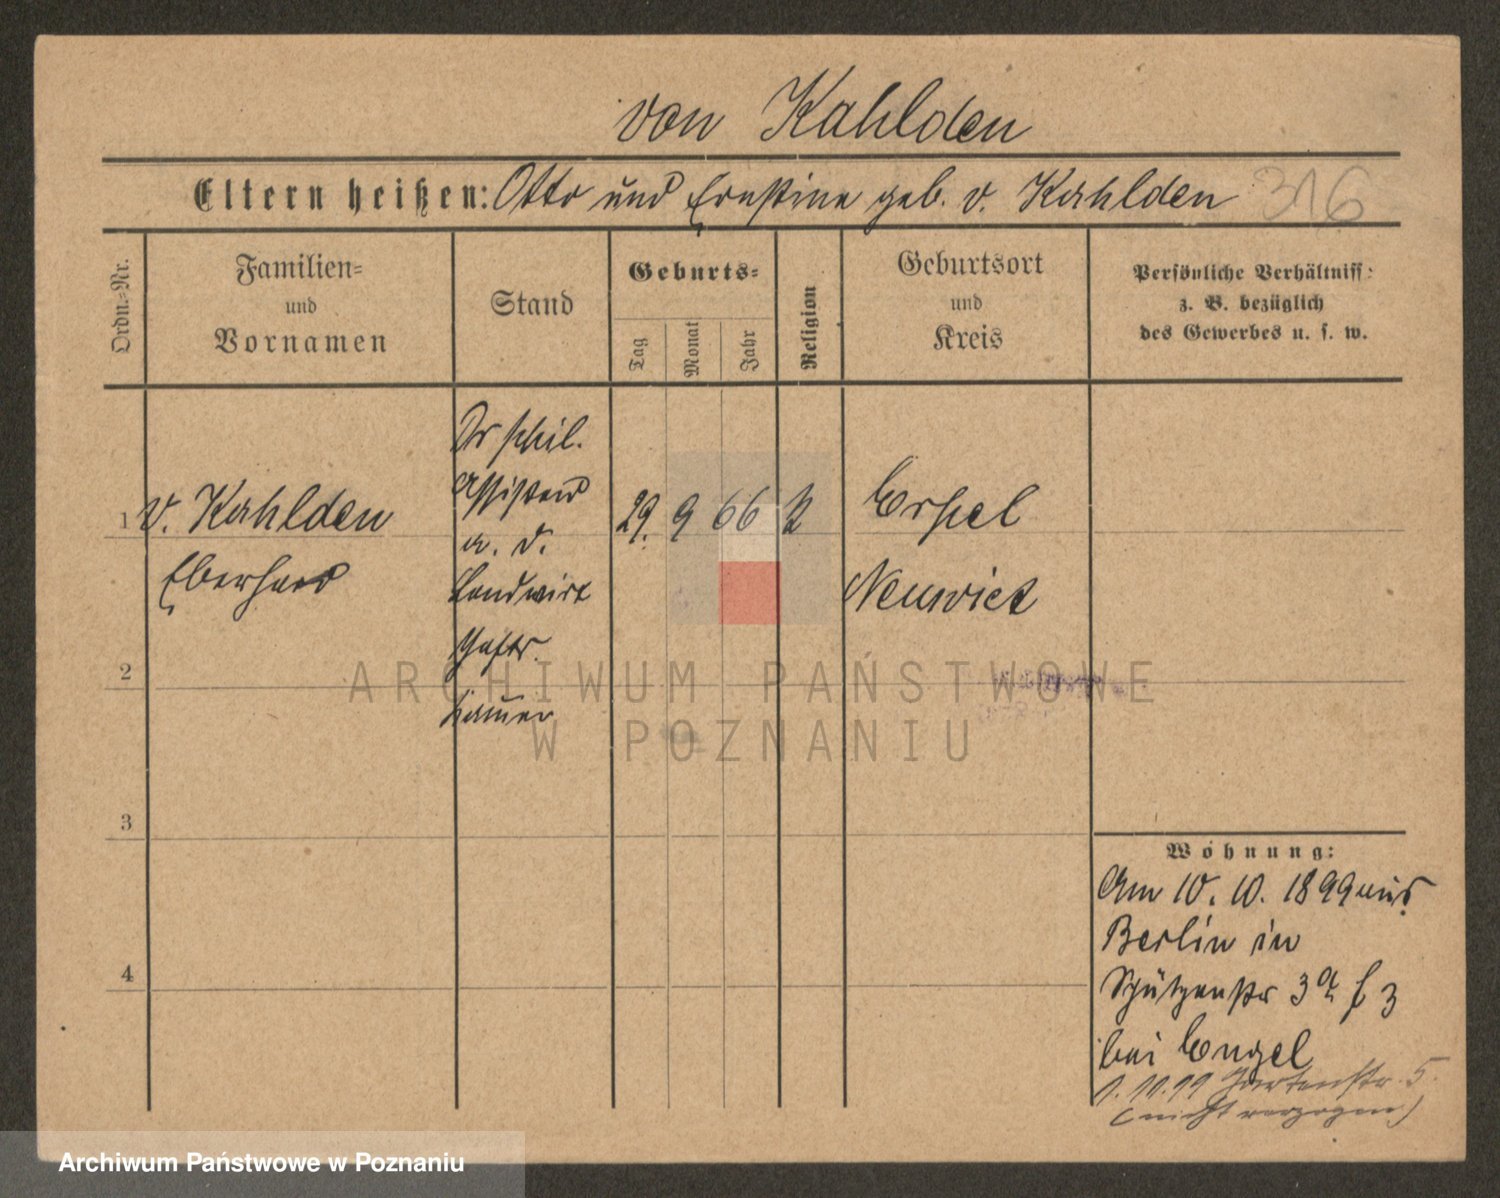 von Kahlden
Eltern heißen: Otto und Ernstine geb. v. Kahlden 316
Ordn.-Nr.
Familien-
und
Vornamen
Stand
Geburts-
Tag
Monat
Jahr
Religion
Geburtsort
und
Kreis
Persönliche Verhältniss:
z. B. bezüglich
des Gewerbes u. s. w.
1 v. Kahlden
Eberhard
Dr phil.
Assistent
a. D.
Landwirt
29. 9 66 k
Erpel
Neuwied
2
3
4
Wohnung:
Am 10. 10. 1899 aus
Berlin in
Schützenstr 3a
bei Engel
1. 11. 99 Gartenstr. 5.
(nicht verzogen)
ARCHIWUM PAŃSTWOWE
W POZNANIU
Archiwum Państwowe w Poznaniu